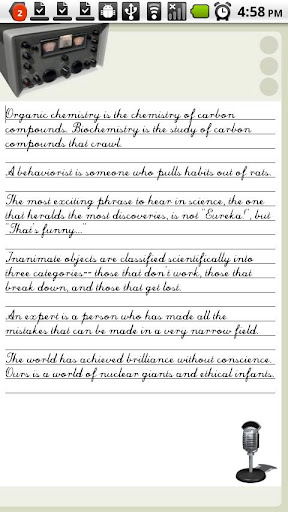 2
4:58 PM
Organic chemistry is the chemistry of carbon
compounds. Biochemistry is the study of carbon
compounds that crawl.
A behaviorist is someone who pulls habits out of rats.
The most exciting phrase to hear in science, the one
that heralds the most discoveries, is not "Eureka!", but
"That's funny..."
Inanimate objects are classified scientifically into
three categories-- those that don't work, those that
break down, and those that get lost.
An expert is a person who has made all the
mistakes that can be made in a very narrow field.
The world has achieved brilliance without conscience.
Ours is a world of nuclear giants and ethical infants.